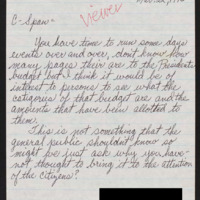 viewer
C-Span-
You have time to run some days
events over and over, don't know how
many pages their are to the Presidents
budget but I think it would be of
interest to persons to see what the
catigorys of that budget are and the
amounts that have been allotted to
them.
This is not something that the
general public shouldn't know so
might I've just ask why you have
not thought to bring it to the attention
of the citizens?